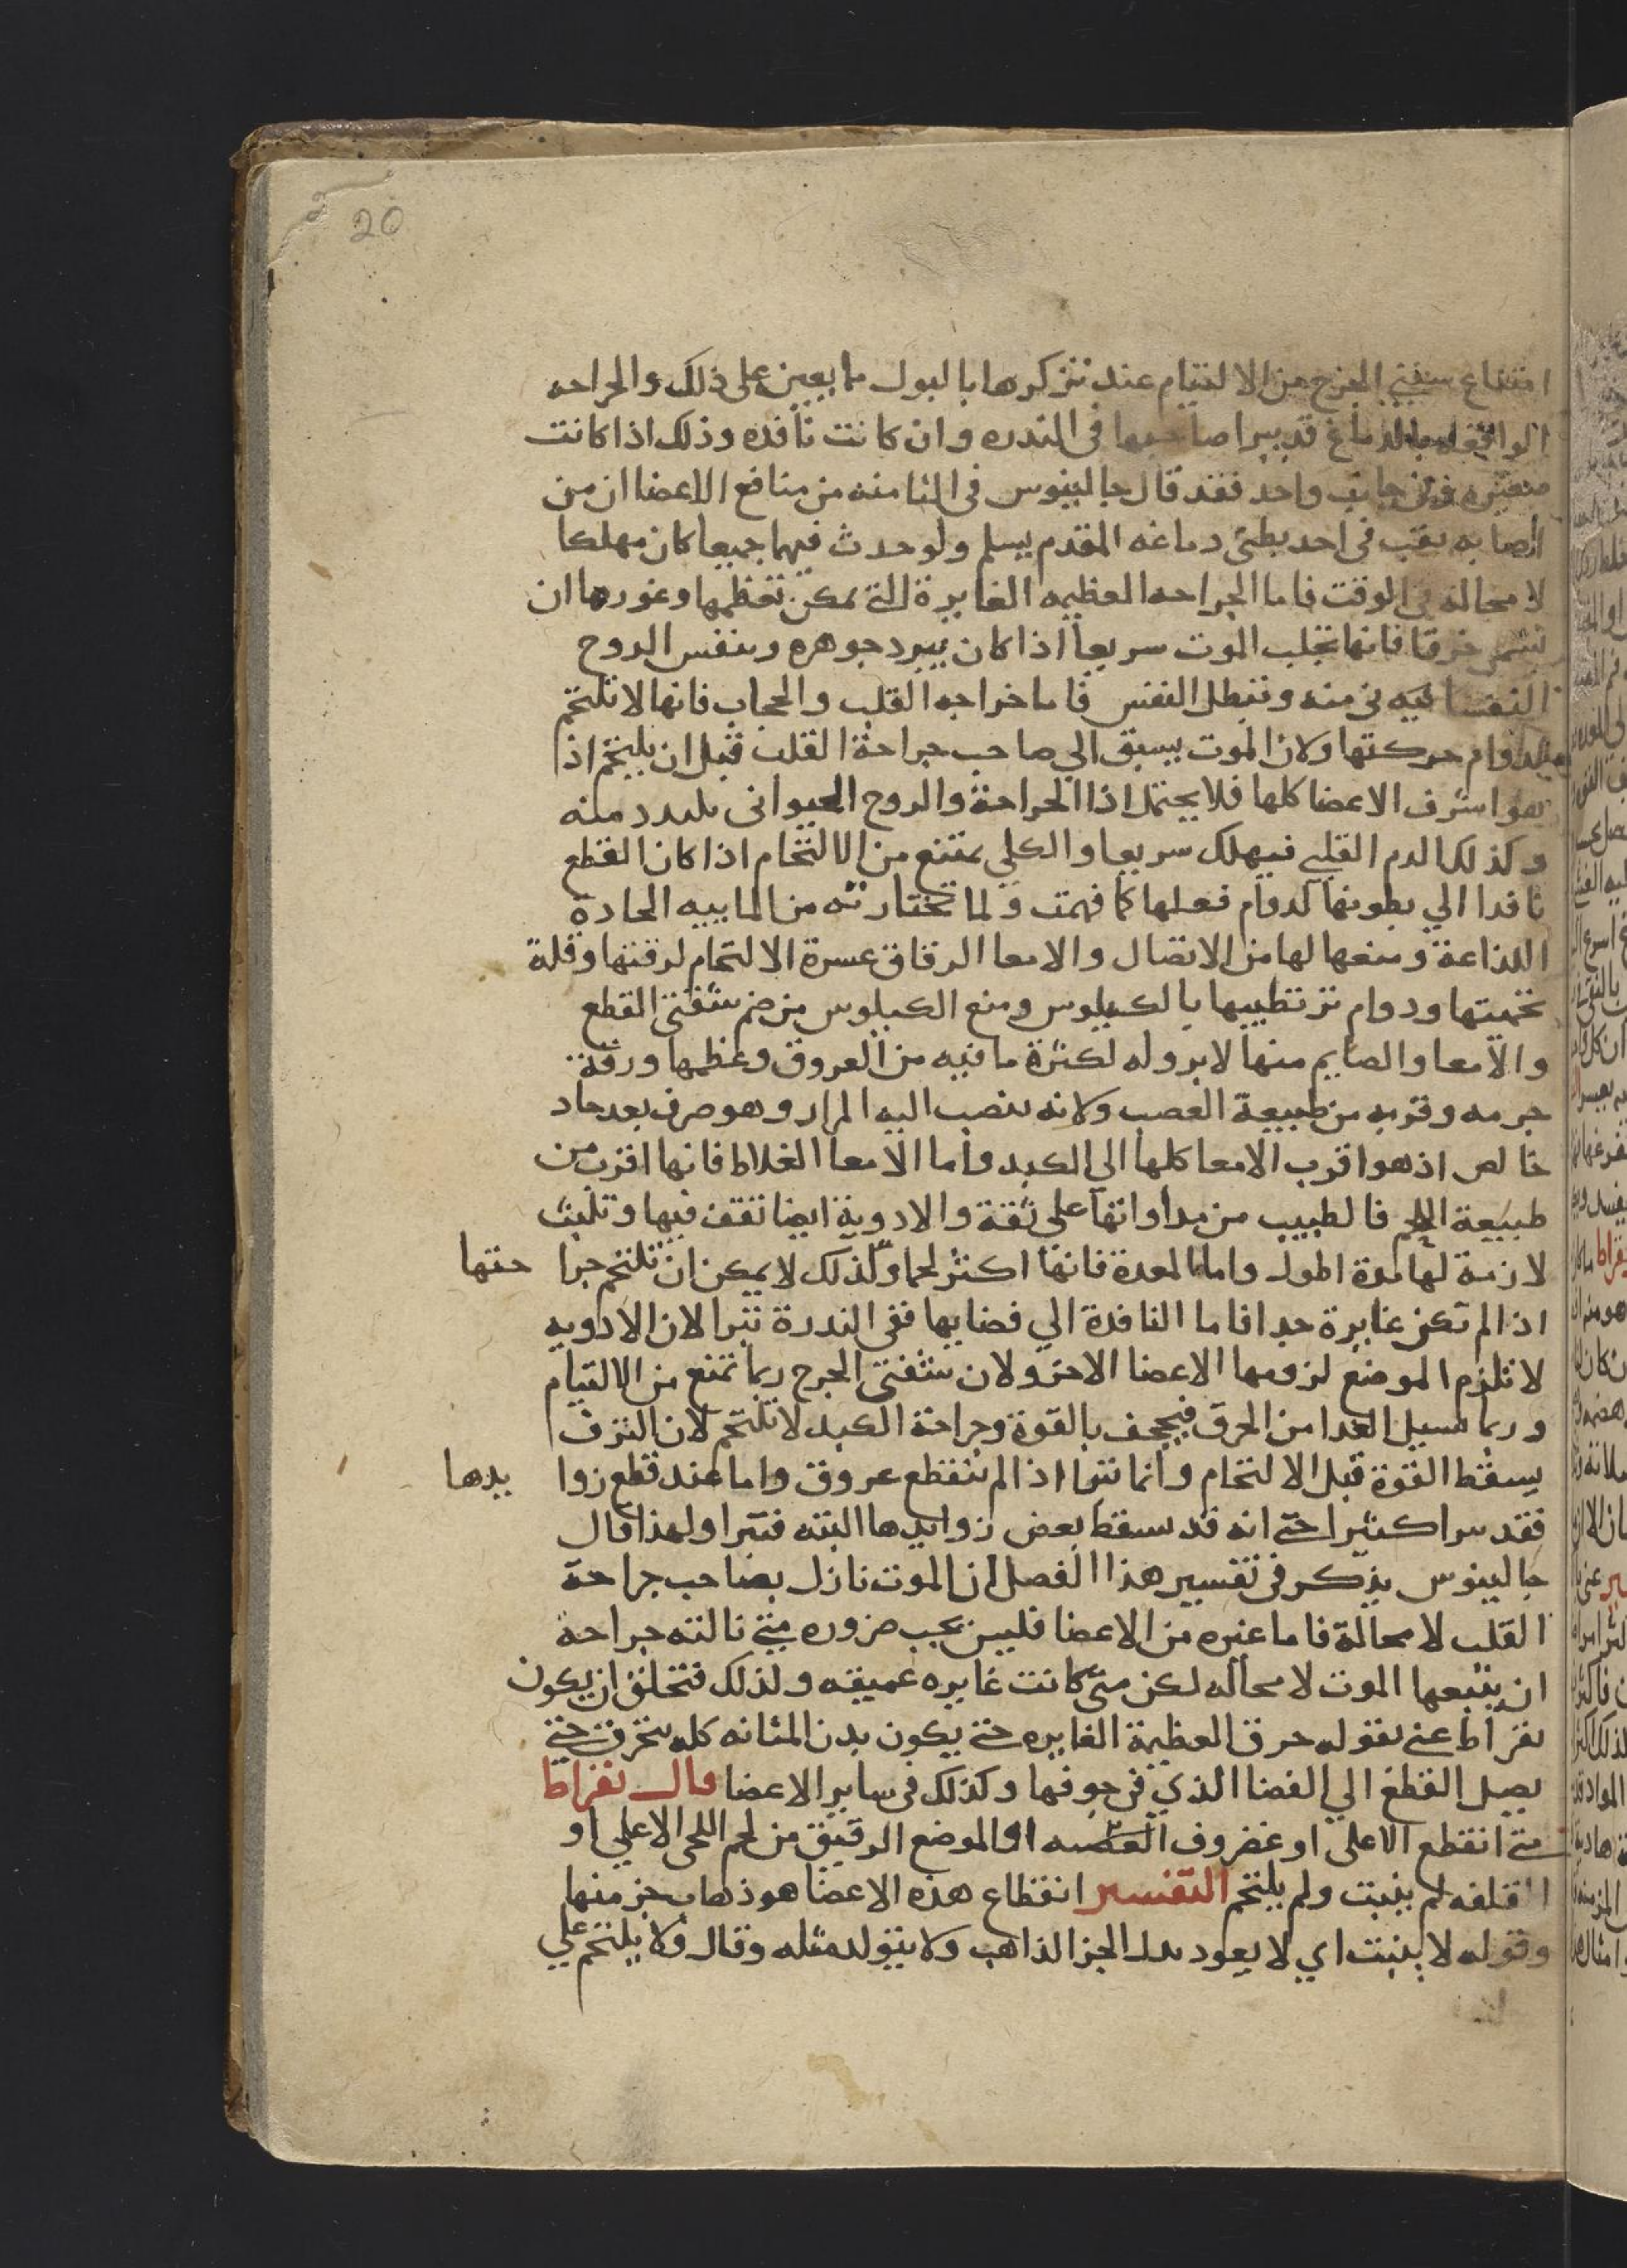 20
امتناع شفتي الجرح من الالتيام عند تزكرها بالبول ما يعين على ذلك والجراحه
الواقعه بالدماغ قد يبرا صاحبها في الندره وان كانت نافده وذلك اذا كانت
صغيره في جانب واحد فقد قال جالينوس في الثامنه من منافع الاعضا ان من
اصابه ثقب في احد بطني دماغه المقدم يسلم ولو حدث فيهما جميعا كان مهلكا
لا محالة في الوقت فاما الجراحه العظيمه الغايرة التي يمكن تعظمها وغورها ان
خرقا فانها تجلب الموت سريعا اذا كان يبرد جوهره وينفس الروح
النفسانيه في منه وتبطل النفس فاما خراجه القلب والحجاب فانها لا تلتحم
لدوام حركتها ولان الموت يسبق الى صاحب جراحة القلب قبل ان يلتحم اذ
هو اشرف الاعضا كلها فلا يحتمل اذا الجراحة والروح الحيواني يتبدد منه
وكذلك الدم القلبي فيهلك سريعا والكلي يمتنع من الالتحام اذا كان القطع
نافدا الي بطونها لدوام فعلها كما فهمت ولما تختارته من المابيه الحادة
اللذاعة ومنعها لها من الاتصال والامعا الدقاق عسرة الالتحام لرقتها وقلة
لحميتها ودوام ترطيبها بالكيلوس ومنع الكيلوس من ضم شفتي القطع
والامعا والصايم منها لا برو له لكثرة ما فيه من العروق وعظمها ورقة
جرمه وقربه من طبيعة العصب ولانه ينصب اليه المرار وهو صرف بعد حاد
خالص اذ هو اقرب الامعا كلها الى الكبد واما الامعا الغلاط فانها اقرب من
طبيعة اللحم فالطبيب من مداواتها على ثقة والادوية ايضا تقف فيها وتلبث
لازمة لها مدة اطول واما المعدة فانها اكثر لحما وكذلك لا يمكن ان تلتحم جرا حتها
اذا لم تكن غايرة جدا فاما النافدة الي فضايها ففي الندرة تبرا لان الادويه
لا تلزم الموضع لزومها الاعضا الاخر ولان شفتي الجرح ربما تمتع من الالتيام
وربما يسيل الغدا من الخرق فيجحف بالقوة وجراحة الكبد لا تلتحم لان النزف
يسقط القوة قبل الالتحام وانما تبرا اذا لم ينقطع عروق واما عند قطع زوا يدها
فقد برا كثيرا حتى انه قد يسقط بعض زوايدها البته فتبرا ولهذا قال
جالينوس يذكر في تفسير هذا الفصل ان الموت نازل بصاحب جراحة
القلب لا محالة فاما غيره من الاعضا فليس يجب ضروره متى نالته جراحة
ان يتبعها الموت لا محاله لكن متى كانت غايره عميقه ولذلك فتخلق ان يكون
بقراط عنى بقوله خرق العظيمة الغايره حتى يكون بدن المثانه كله ينخرق حتى
يصل القطع الي الفضا الذي في جوفها وكذلك في ساير الاعضا قال بقراط
متى انقطع الاعلى او غضروف العصبه او الموضع الرقيق من لحم اللحى الاعلي او
القلفه لم ينبت ولم يلتحم التفسير انقطاع هذه الاعضا هو ذهاب جز منها
وقوله لا ينبت اي لا يعود بدل الجز الذاهب ولا يتولد مثله وقال ولا يلتحم علي